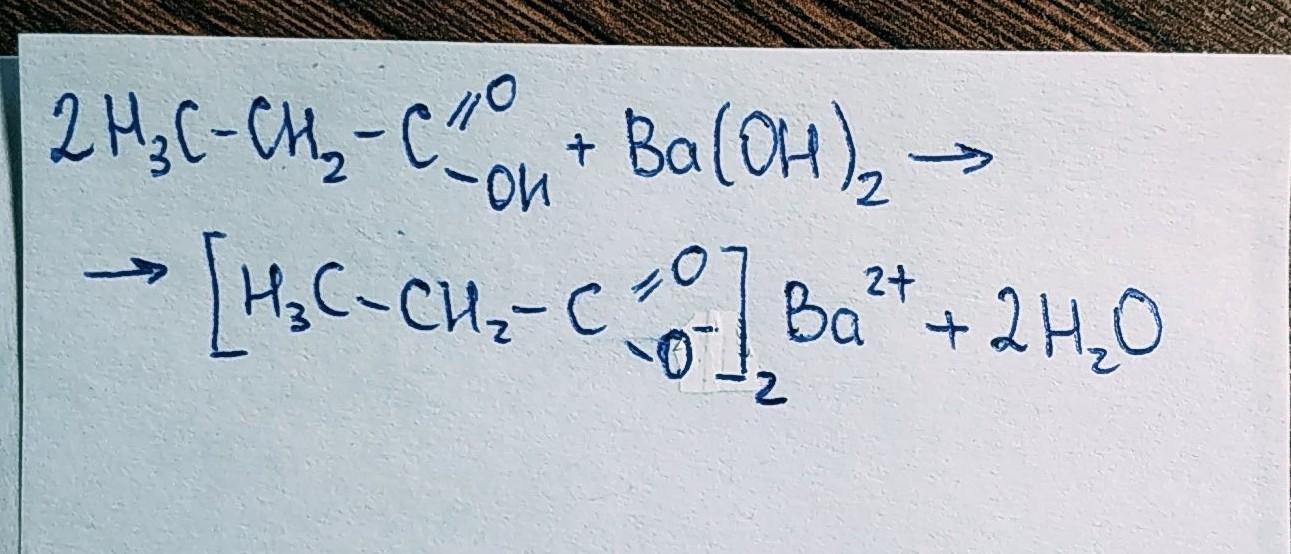 2H₃C-CH₂-C(=O)-OH + Ba(OH)₂ →
→ [H₃C-CH₂-C(=O)-O⁻]₂ Ba²⁺ + 2H₂O